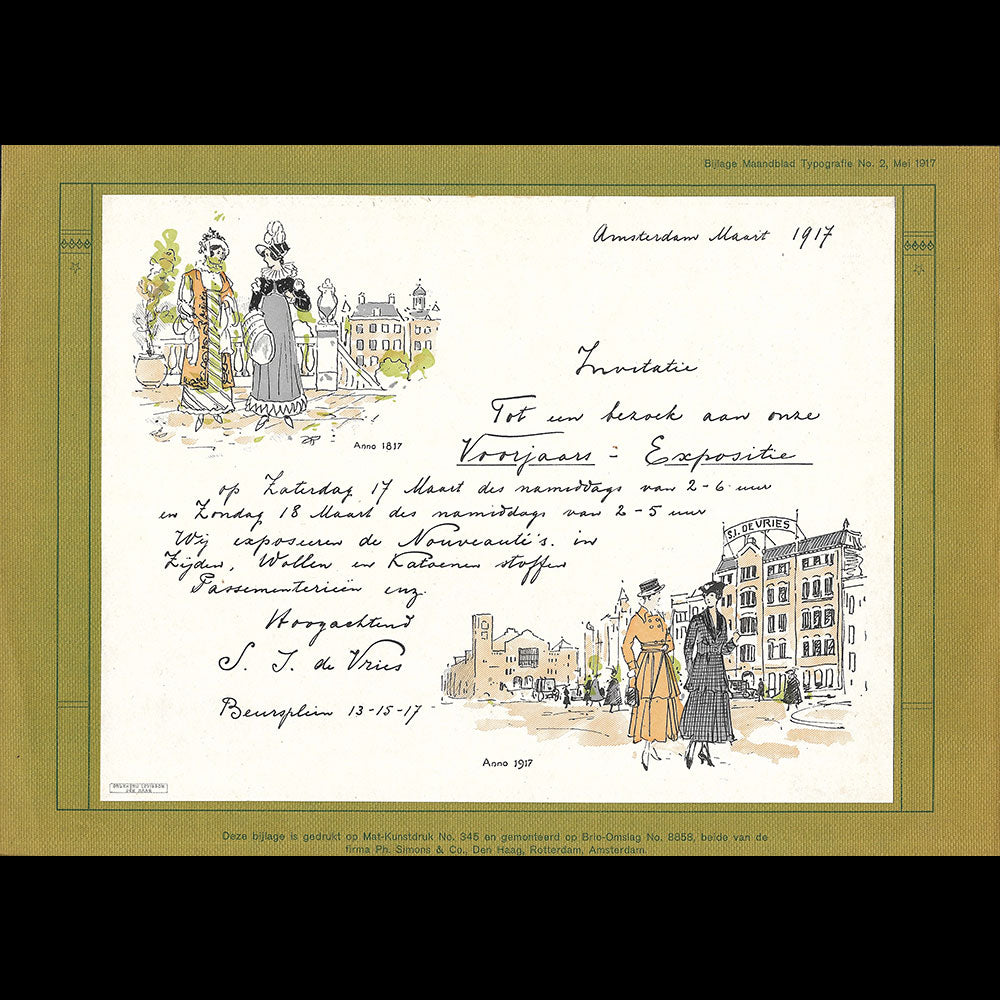 Bijlage Maandblad Typografie No. 2, Mei 1917
Amsterdam Maart 1917
Invitatie
Tot een bezoek aan onze
Voorjaars - Expositie
op Zaterdag 17 Maart des namiddags van 2-6 uur
en Zondag 18 Maart des namiddags van 2-5 uur
Wij exposeeren de Nouveauté's. in
Zijden, Wollen en Katoenen stoffen
Passementerieën enz.
Hoogachtend
S. I. de Vries
Beursplein 13-15-17
Anno 1817
S.I. DE VRIES
Anno 1917
DRUKKERIJ LEVISSON
DEN HAAG
Deze bijlage is gedrukt op Mat-Kunstdruk No. 345 en gemonteerd op Brio-Omslag No. 8858, beide van de
firma Ph. Simons & Co., Den Haag, Rotterdam, Amsterdam.